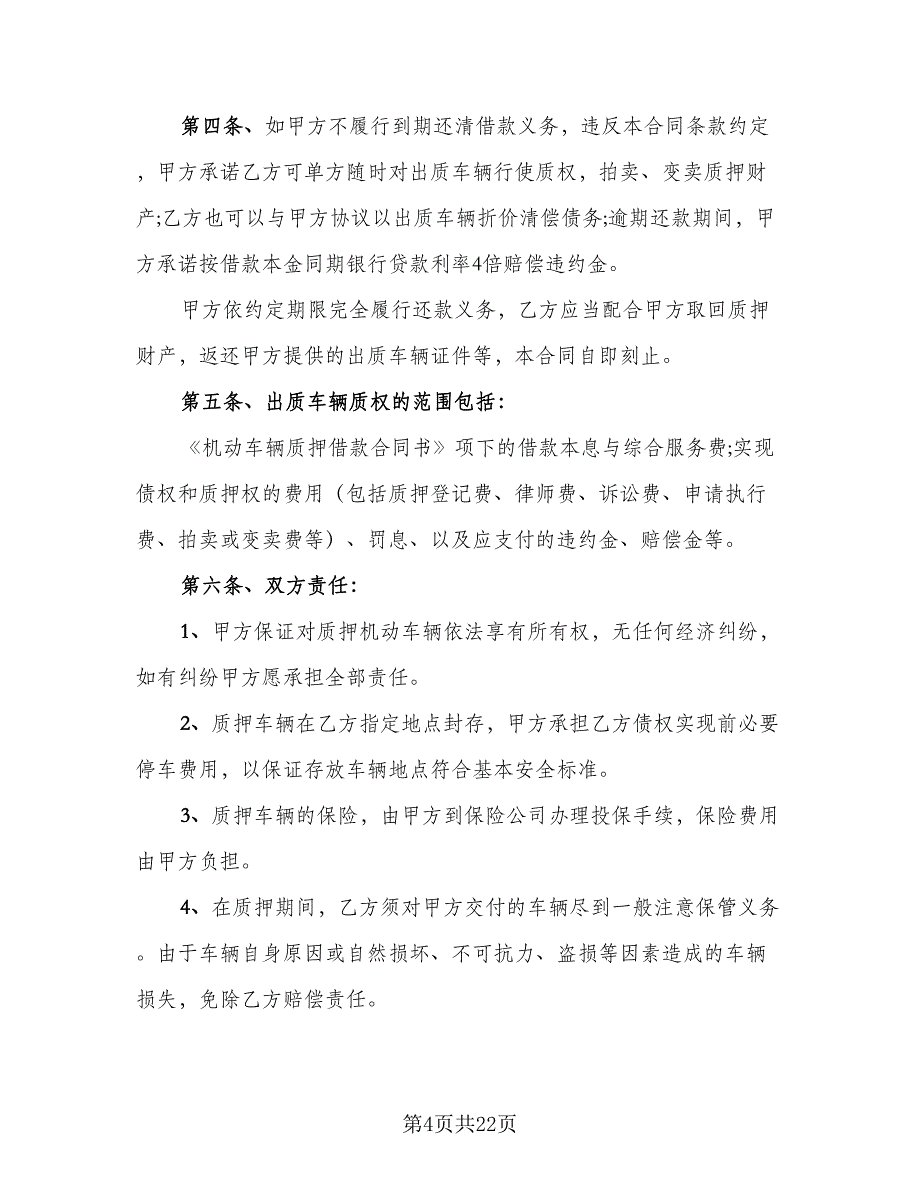 第四条、如甲方不履行到期还清借款义务，违反本合同条款约定
，甲方承诺乙方可单方随时对出质车辆行使质权，拍卖、变卖质押财
产;乙方也可以与甲方协议以出质车辆折价清偿债务;逾期还款期间，甲
方承诺按借款本金同期银行贷款利率4倍赔偿违约金。
甲方依约定期限完全履行还款义务，乙方应当配合甲方取回质押
财产，返还甲方提供的出质车辆证件等，本合同自即刻止。
第五条、出质车辆质权的范围包括：
《机动车辆质押借款合同书》项下的借款本息与综合服务费;实现
债权和质押权的费用（包括质押登记费、律师费、诉讼费、申请执行
费、拍卖或变卖费等）、罚息、以及应支付的违约金、赔偿金等。
第六条、双方责任：
1、甲方保证对质押机动车辆依法享有所有权，无任何经济纠纷，
如有纠纷甲方愿承担全部责任。
2、质押车辆在乙方指定地点封存，甲方承担乙方债权实现前必要
停车费用，以保证存放车辆地点符合基本安全标准。
3、质押车辆的保险，由甲方到保险公司办理投保手续，保险费用
由甲方负担。
4、在质押期间，乙方须对甲方交付的车辆尽到一般注意保管义务
。由于车辆自身原因或自然损坏、不可抗力、盗损等因素造成的车辆
损失，免除乙方赔偿责任。
第4页共22页